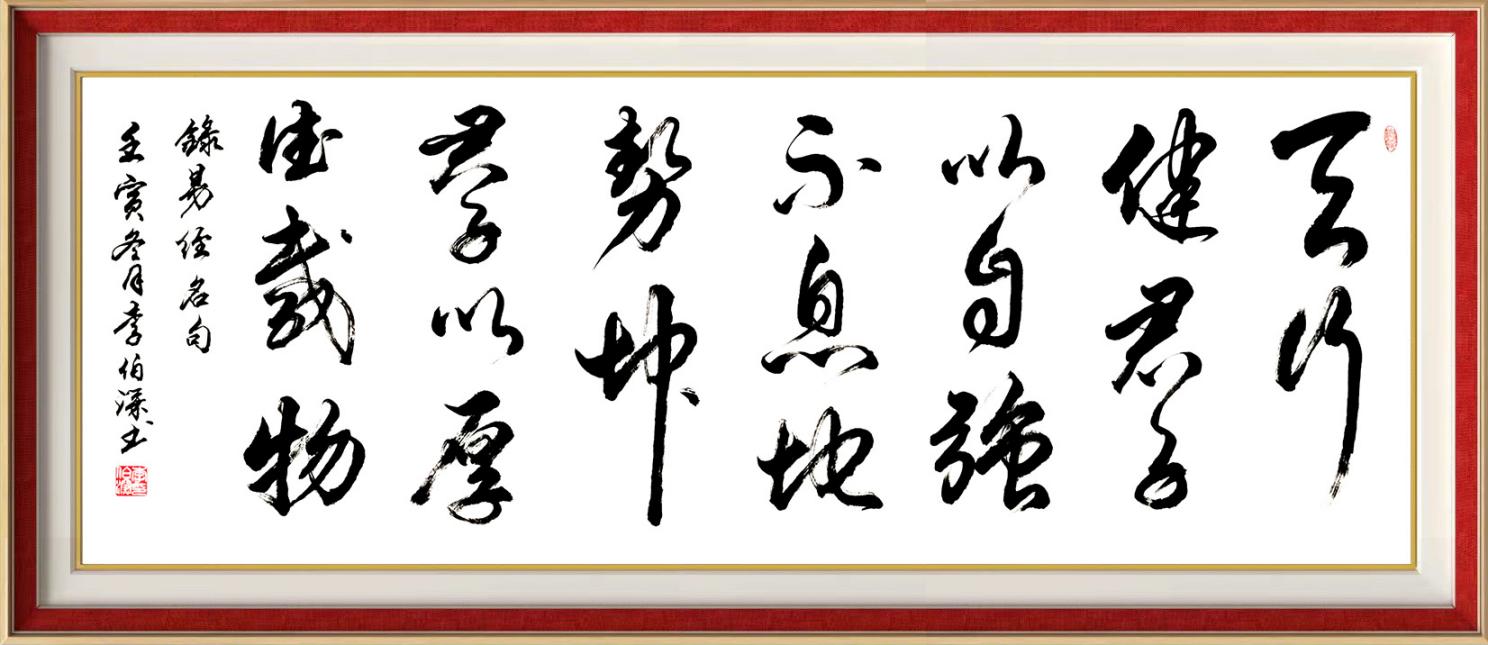 天行
健君子
以自強
不息地
勢坤
君子以厚
德載物
錄易經名句
壬寅冬月李伯深书